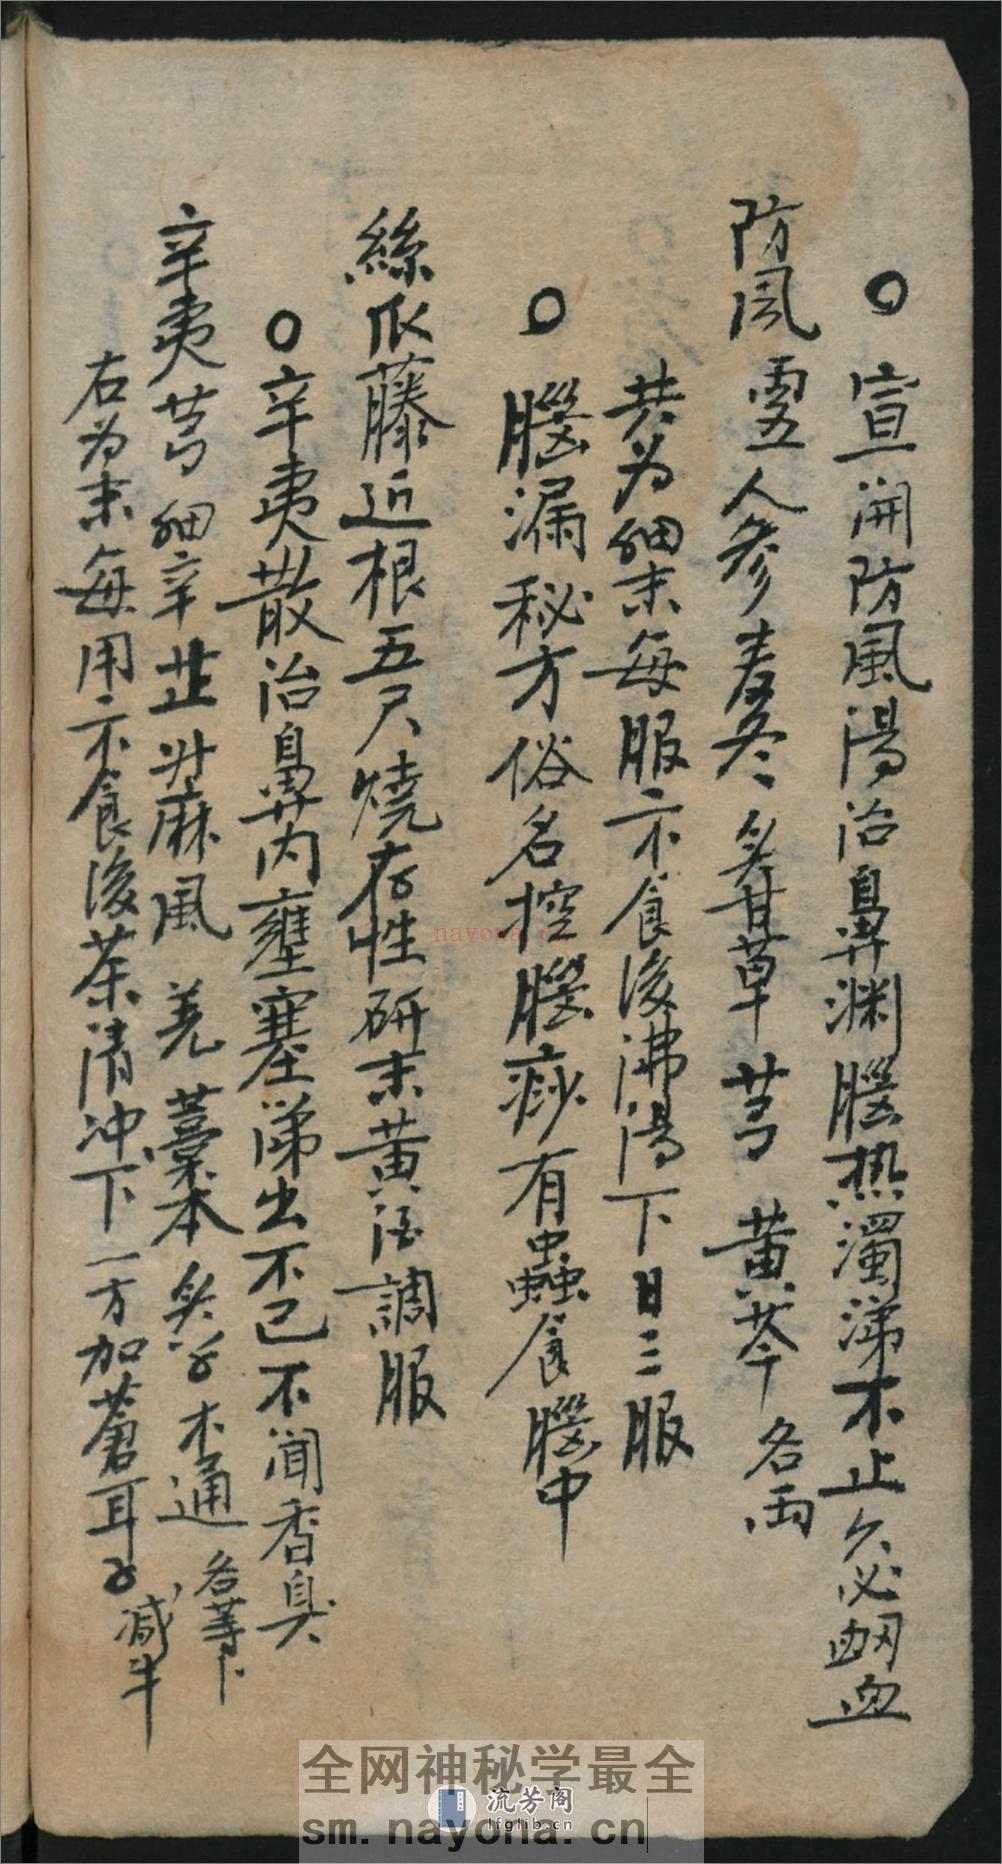 〇宣開防風湯治鼻淵腦热濁涕不止久必衂血
防風 人參麦冬炙甘草芎黄芩各両
共为細末每服二不食後沸湯下日三服
〇腦漏秘方俗名控腦痧有蟲食腦中
絲瓜藤近根五尺燒存性研末黄酒調服
〇辛夷散治鼻內壅塞涕出不已不闻香臭
辛夷芎細辛芷升麻風羌藁本炙木通各等
右为末每用不食後茶清冲下一方加蒼耳子减半
nayona.cn
全网神秘学最全
流芳阁
lfglib.cn
sm.nayona.cn